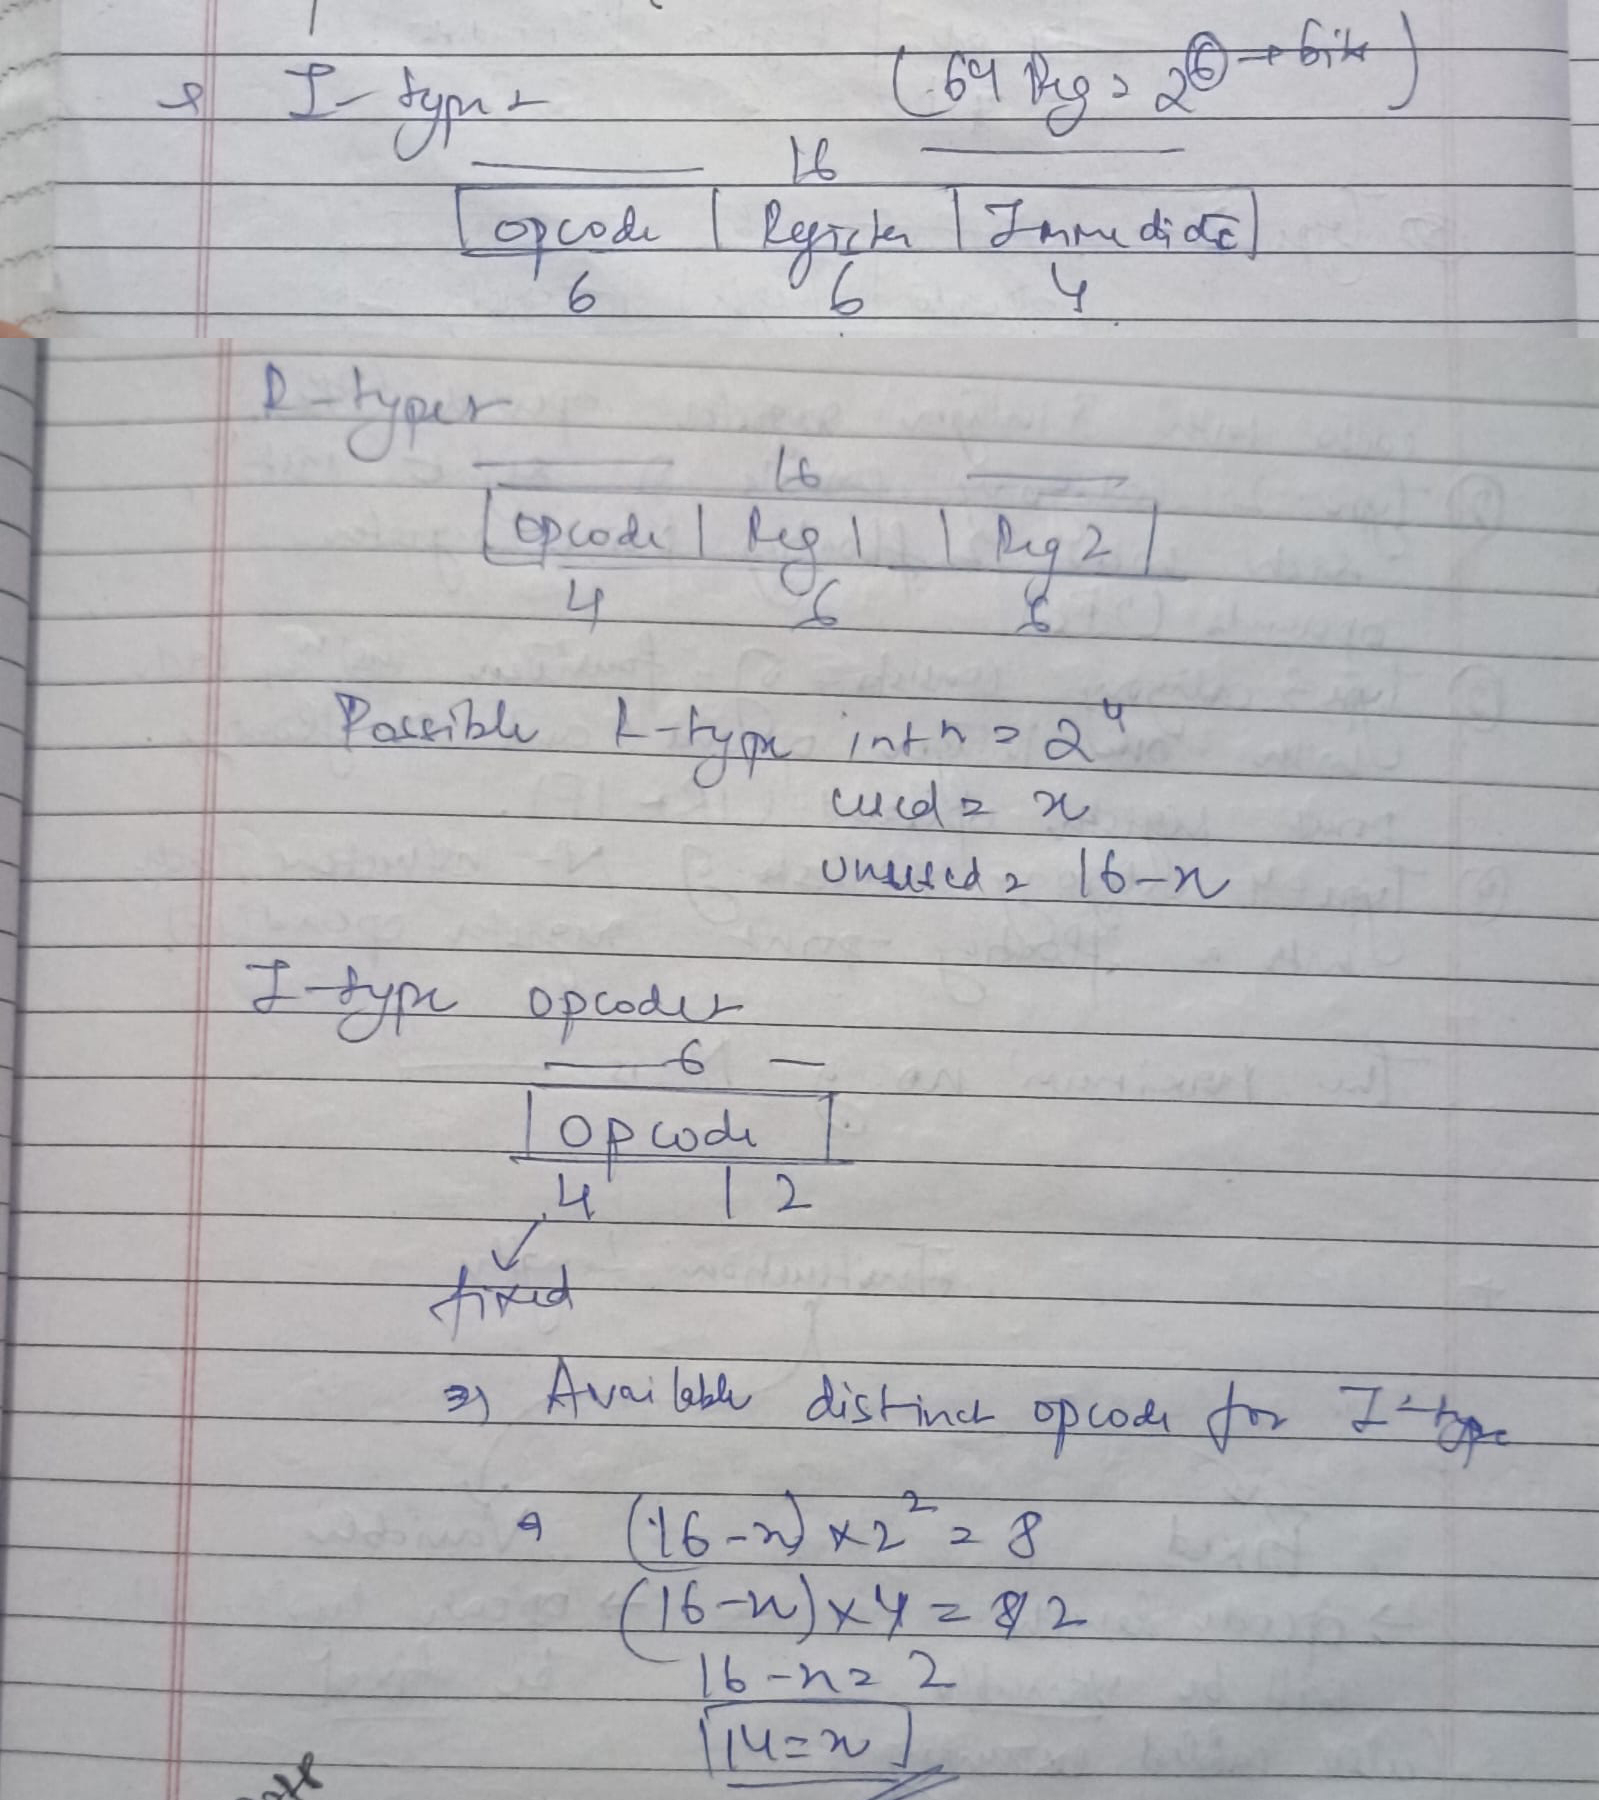 I-type
(64 Reg = 2⁶ → bits)
16
opcode | Register | Immediate
6 6 4
R-type
16
opcode | Reg 1 | Reg 2
4 6 6
Possible R-type intn = 2⁴
used = x
unused = 16-x
I-type opcode
6
opcode
4 | 2
fixed
⇒ Available distinct opcode for I-type
(16-x) x 2² = 8
(16-x) x 4 = 8 2
16-x = 2
14 = x